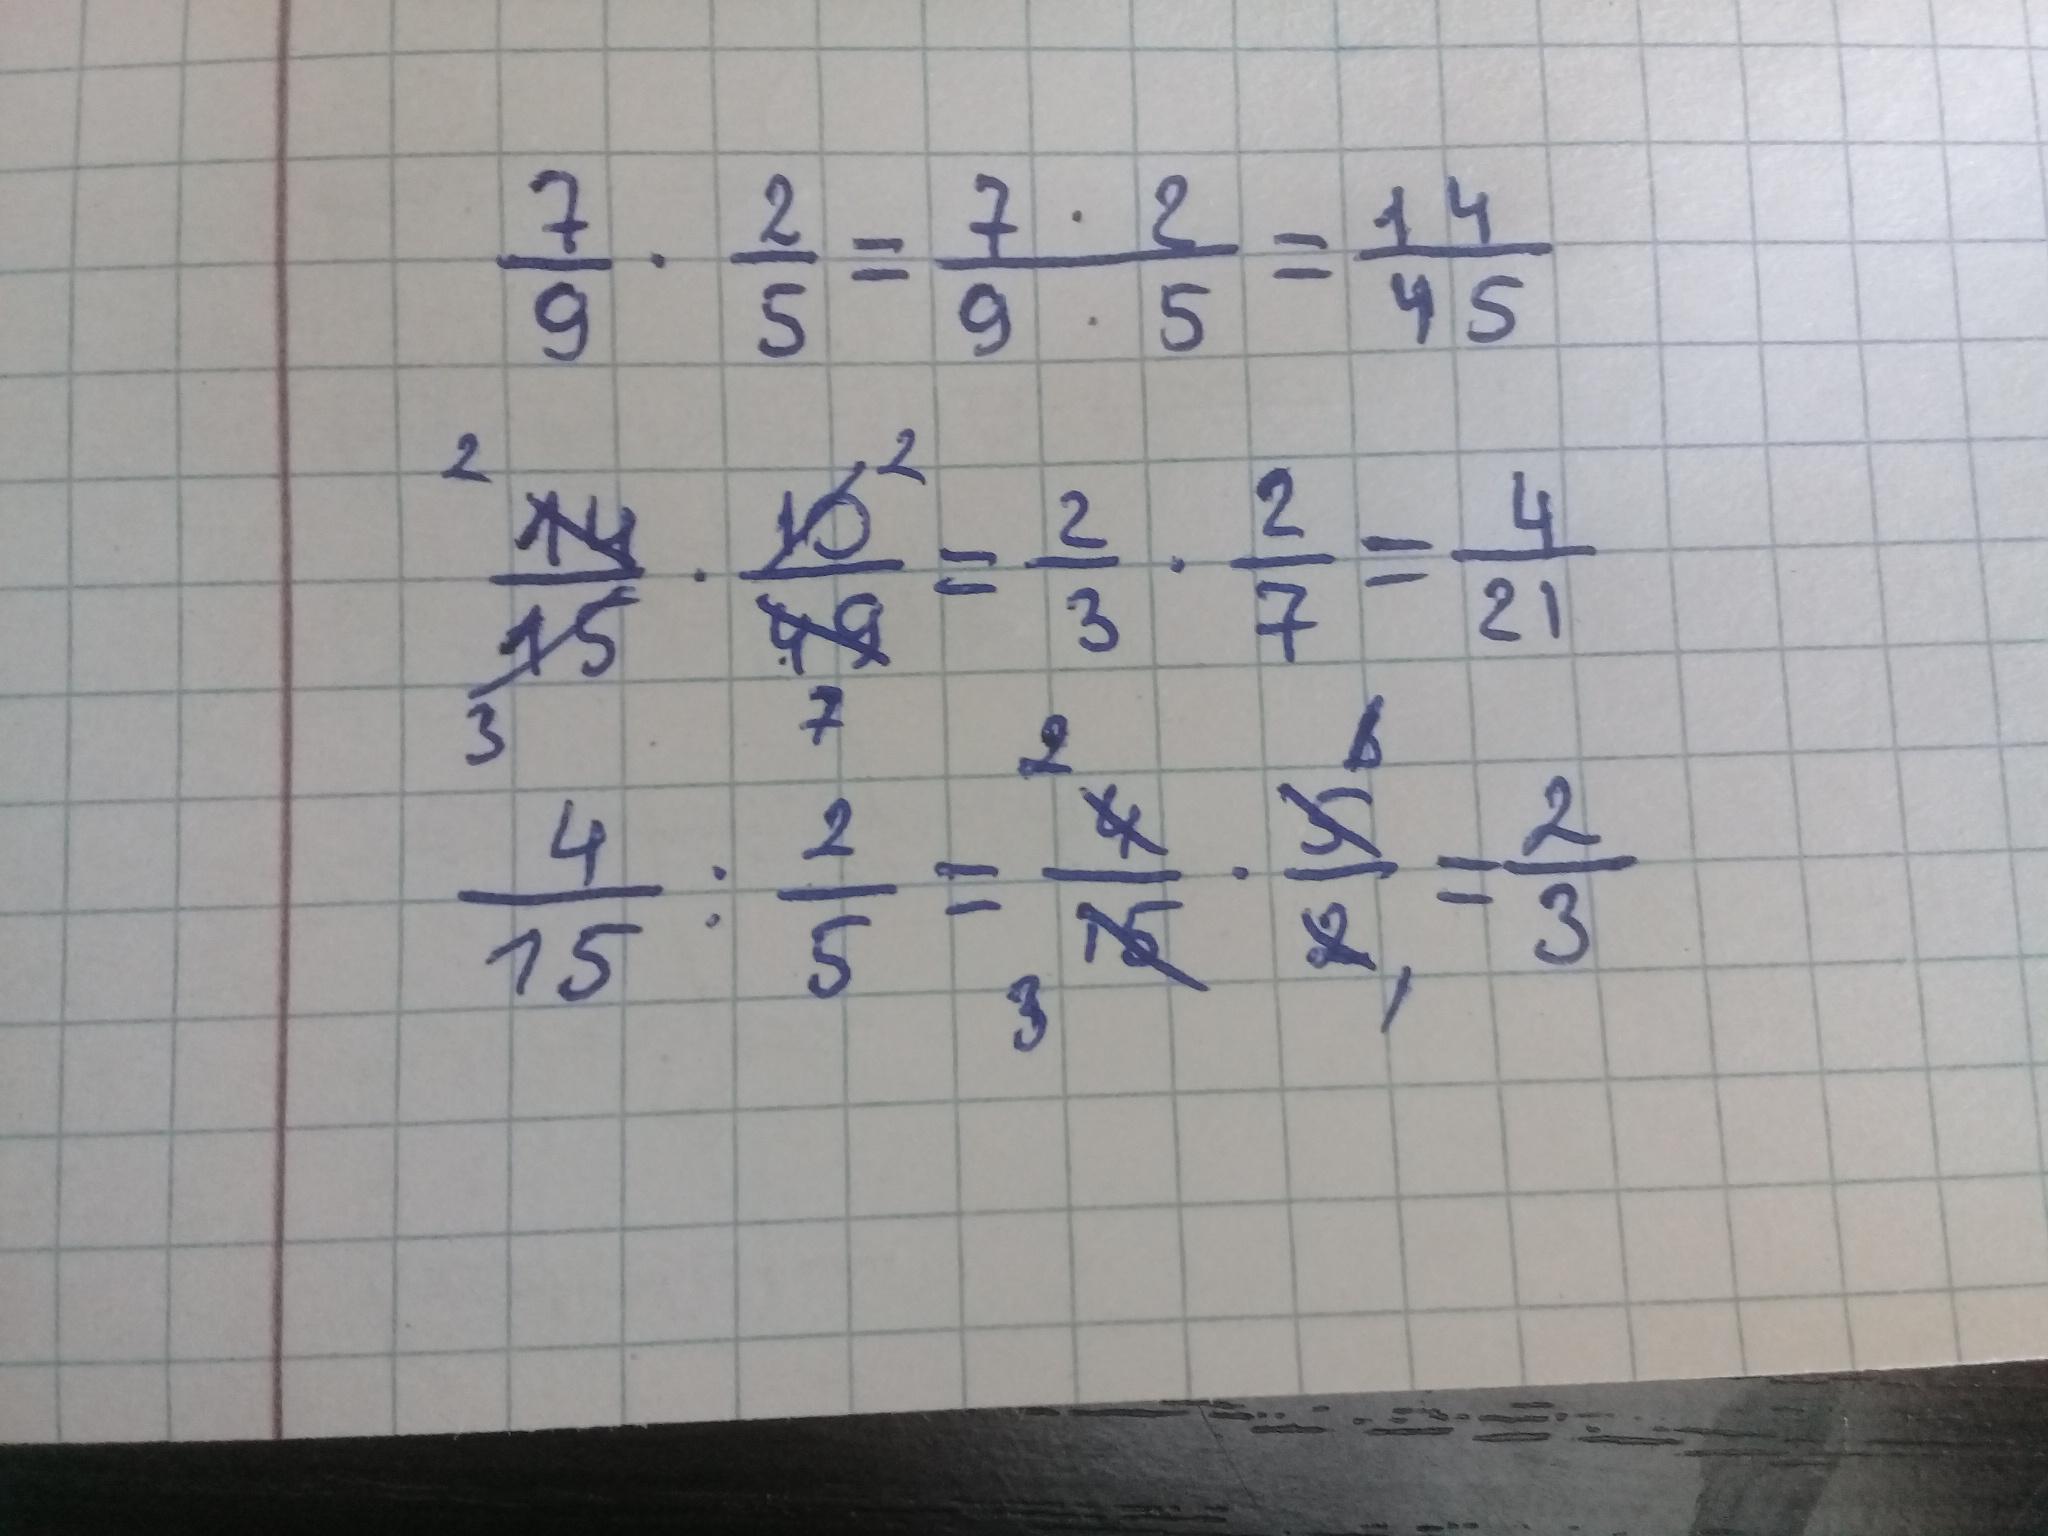 7/9 · 2/5 = 7 · 2/9 · 5 = 14/45
2 14/15 3 · 10/49 2 7 = 2/3 · 2/7 = 4/21
4/15 : 2/5 = 2 4/15 3 · 5/2 1 = 2/3